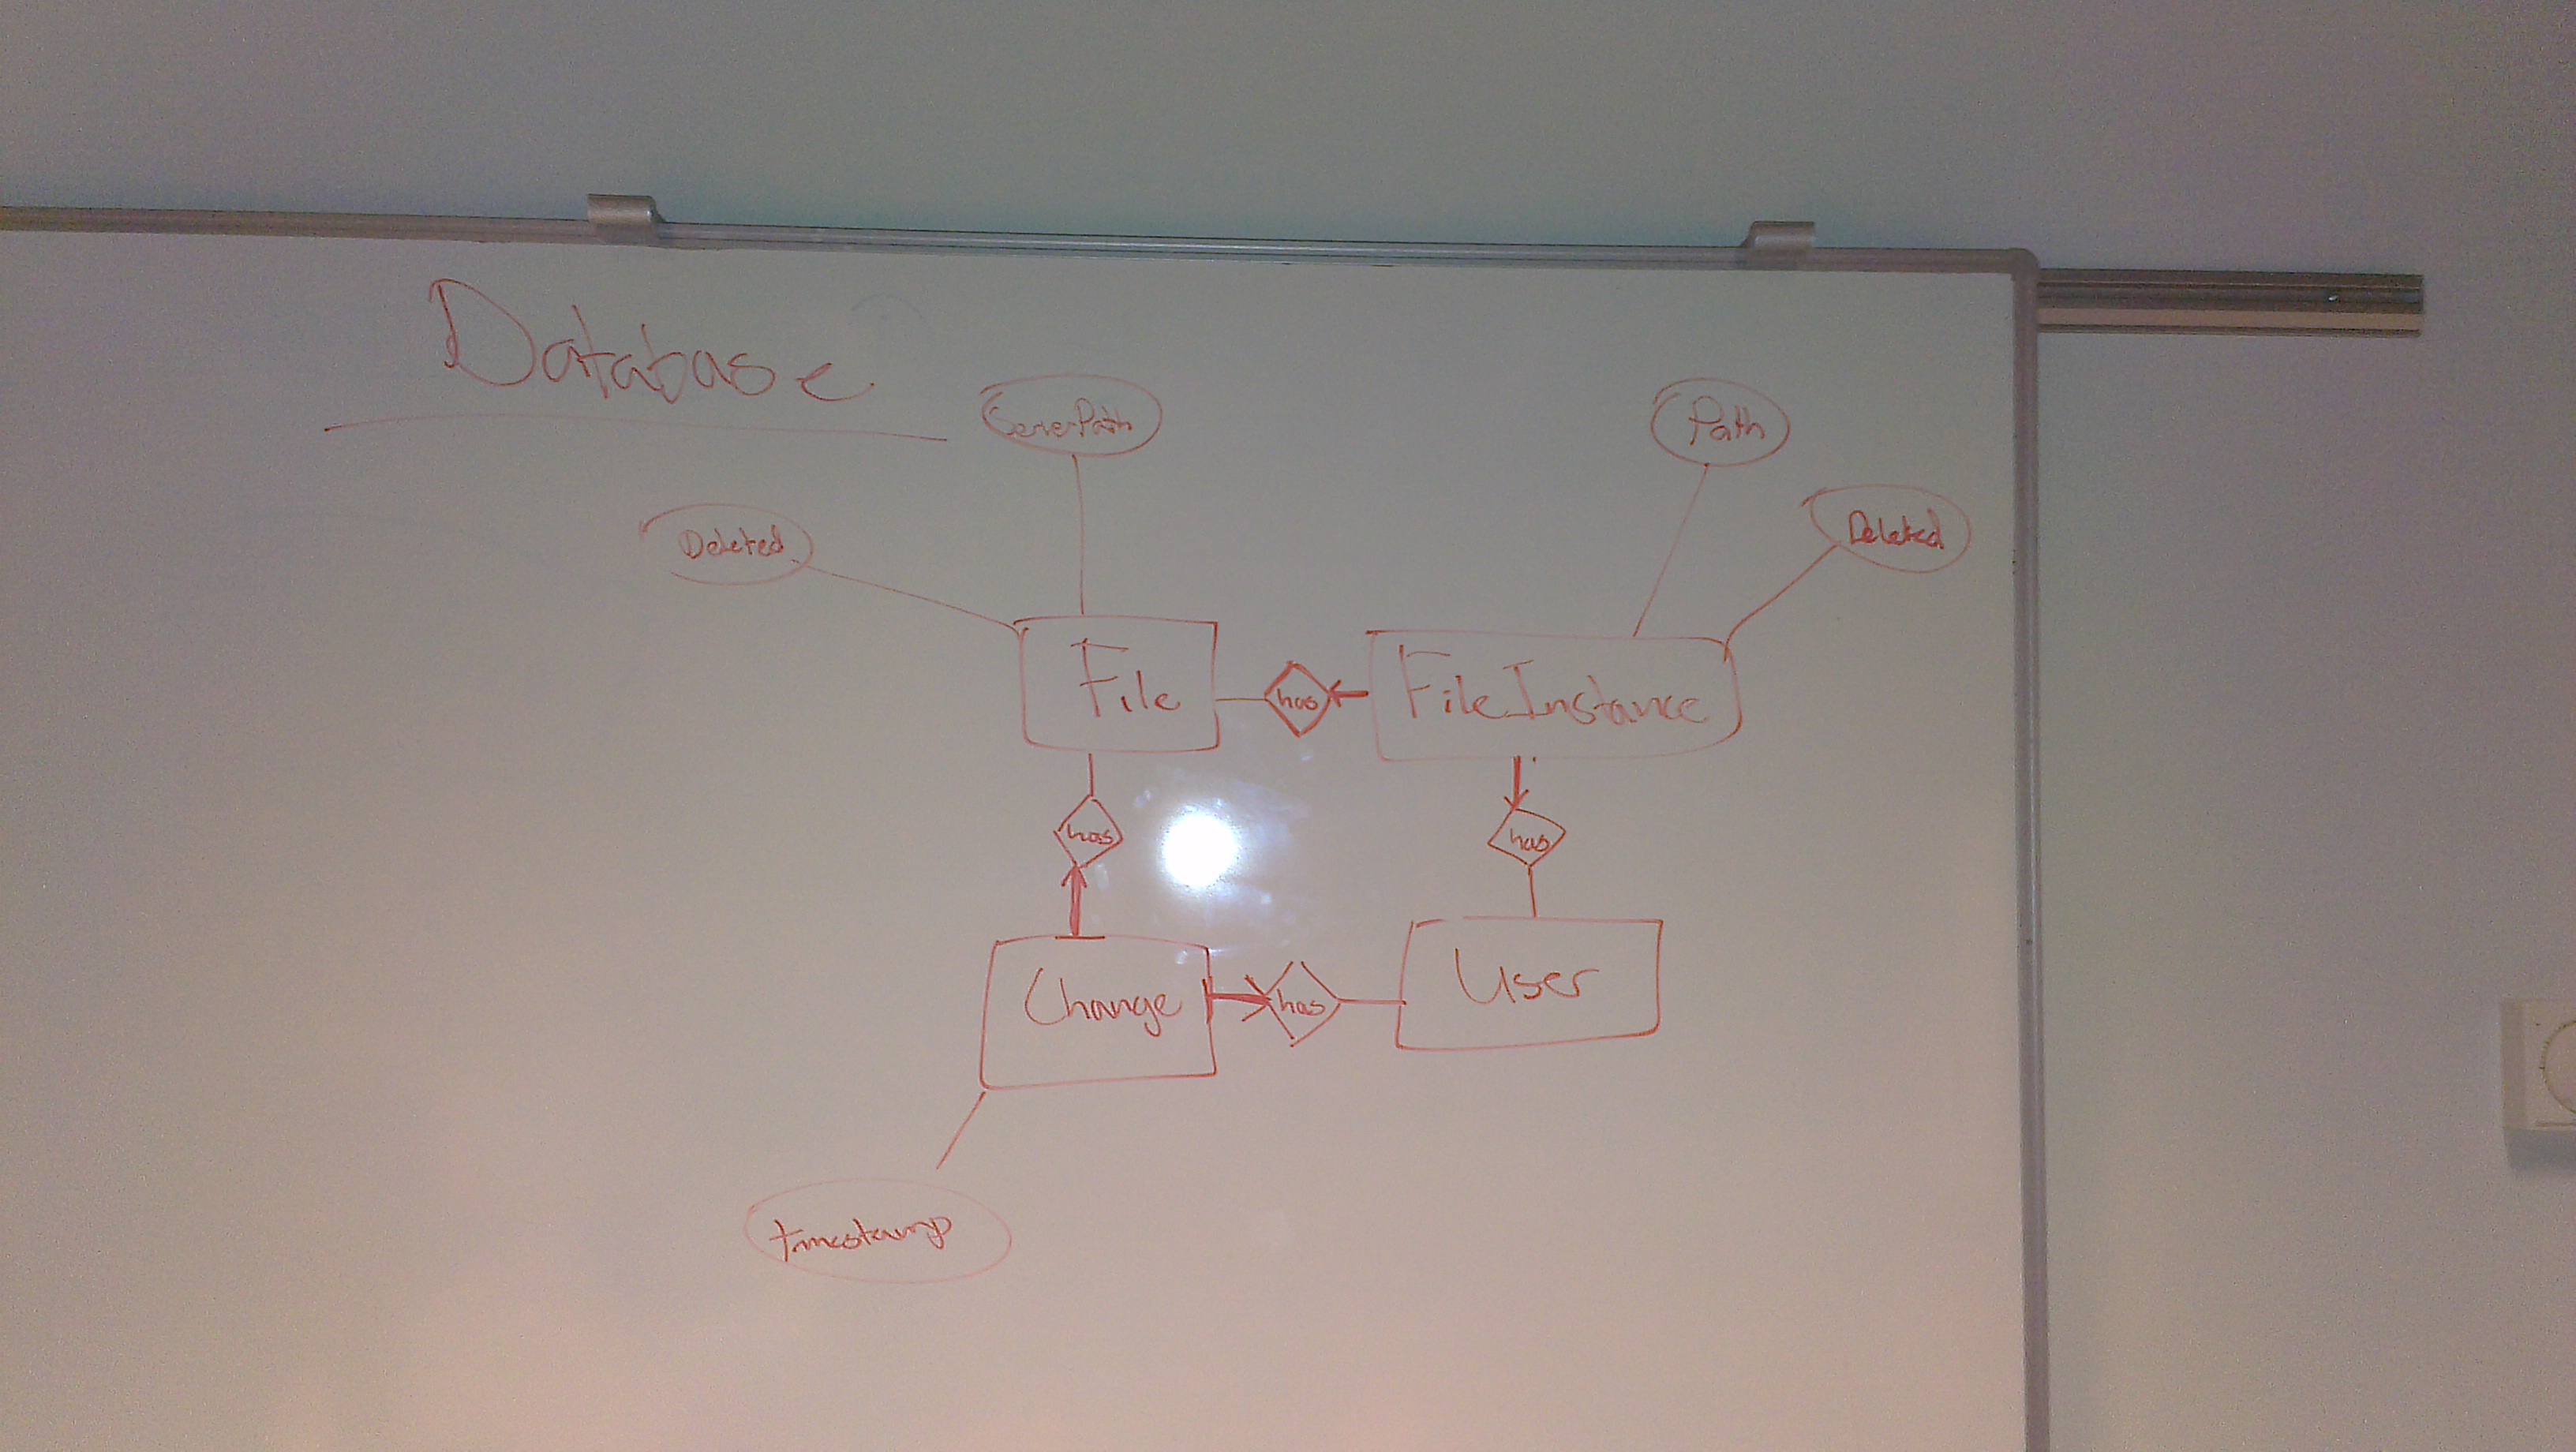 Database
ServerPath
Path
Deleted
Deleted
File
has
FileInstance
has
has
Change
has
User
timestamp